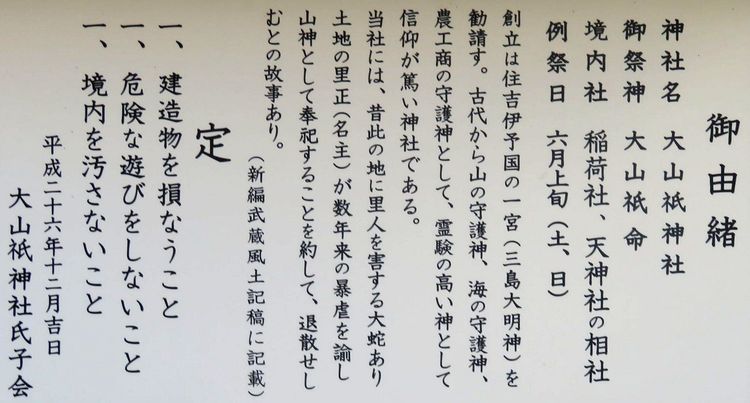 御由緒
神社名　大山祇神社
御祭神　大山祇命
境内社　稲荷社、天神社の相社
例祭日　六月上旬（土、日）
創立は住吉伊予国の一宮（三島大明神）を
勧請す。古代から山の守護神、海の守護神、
農工商の守護神として、霊験の高い神として
信仰が篤い神社である。
当社には、昔此の地に里人を害する大蛇あり
土地の里正（名主）が数年来の暴虐を諭し
山神として奉祀することを約して、退散せし
むとの故事あり。
（新編武蔵風土記稿に記載）
定
一、建造物を損なうこと
一、危険な遊びをしないこと
一、境内を汚さないこと
平成二十六年十二月吉日
大山祇神社氏子会